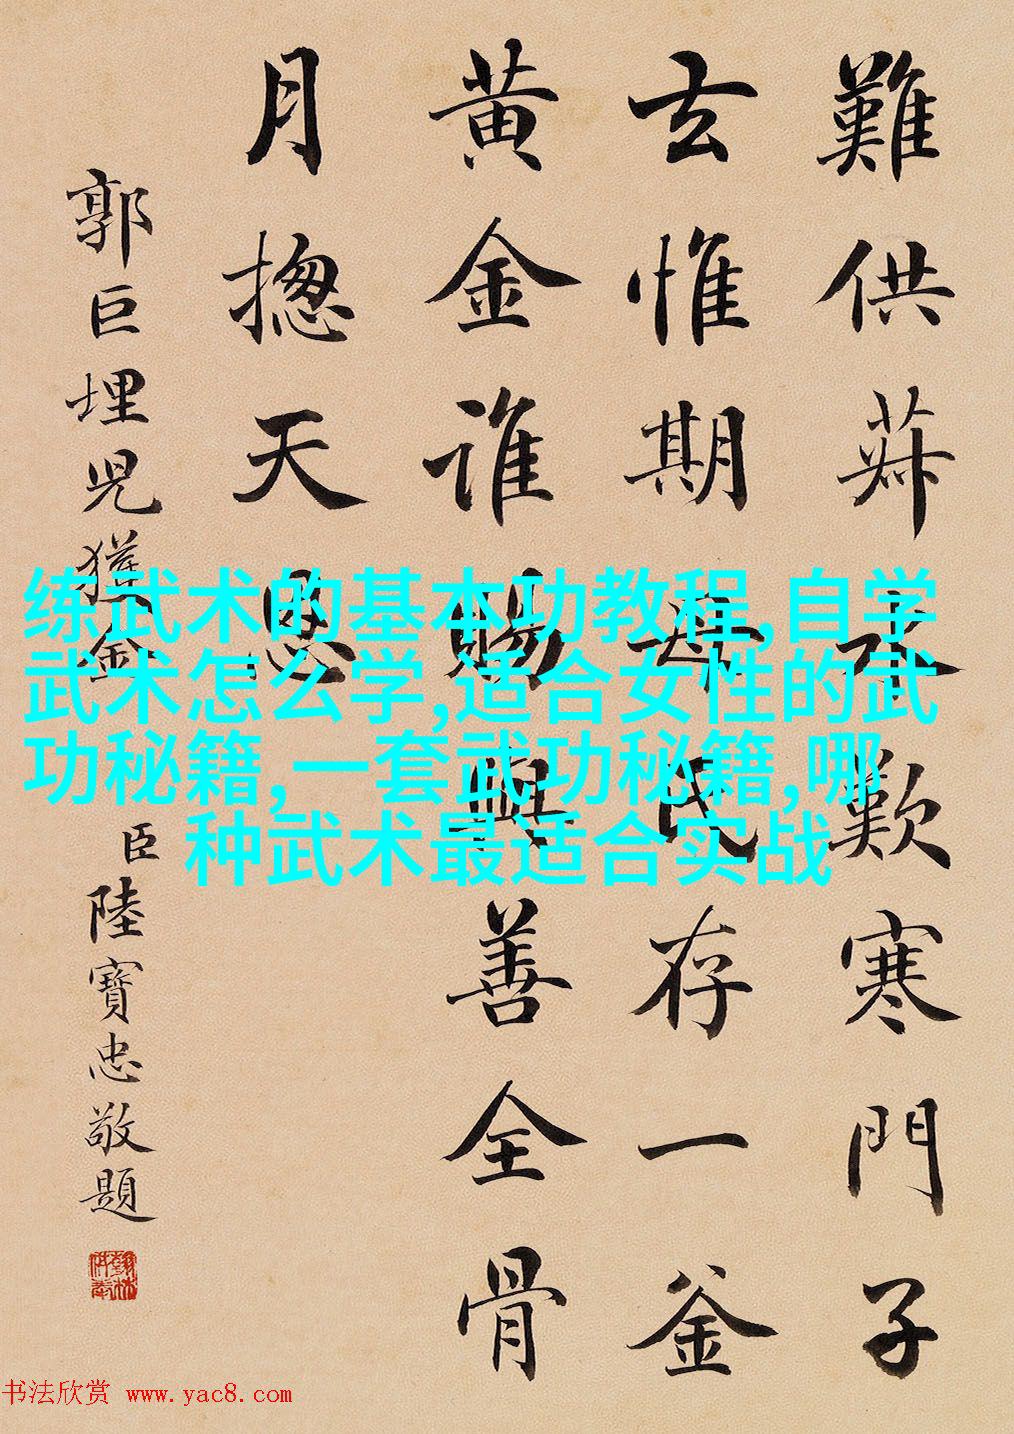 難供菽水歎寒門子
去惟期母氏存一釜
黄金誰賜與善全骨
月揔天恩
郭巨埋児獲金
臣陸寶忠敬題
练武术的基本功教程,自学
武术怎么学,适合女性的武
功秘籍,一套武功秘籍,哪
种武术最适合实战
书法欣赏 www.yac8.com